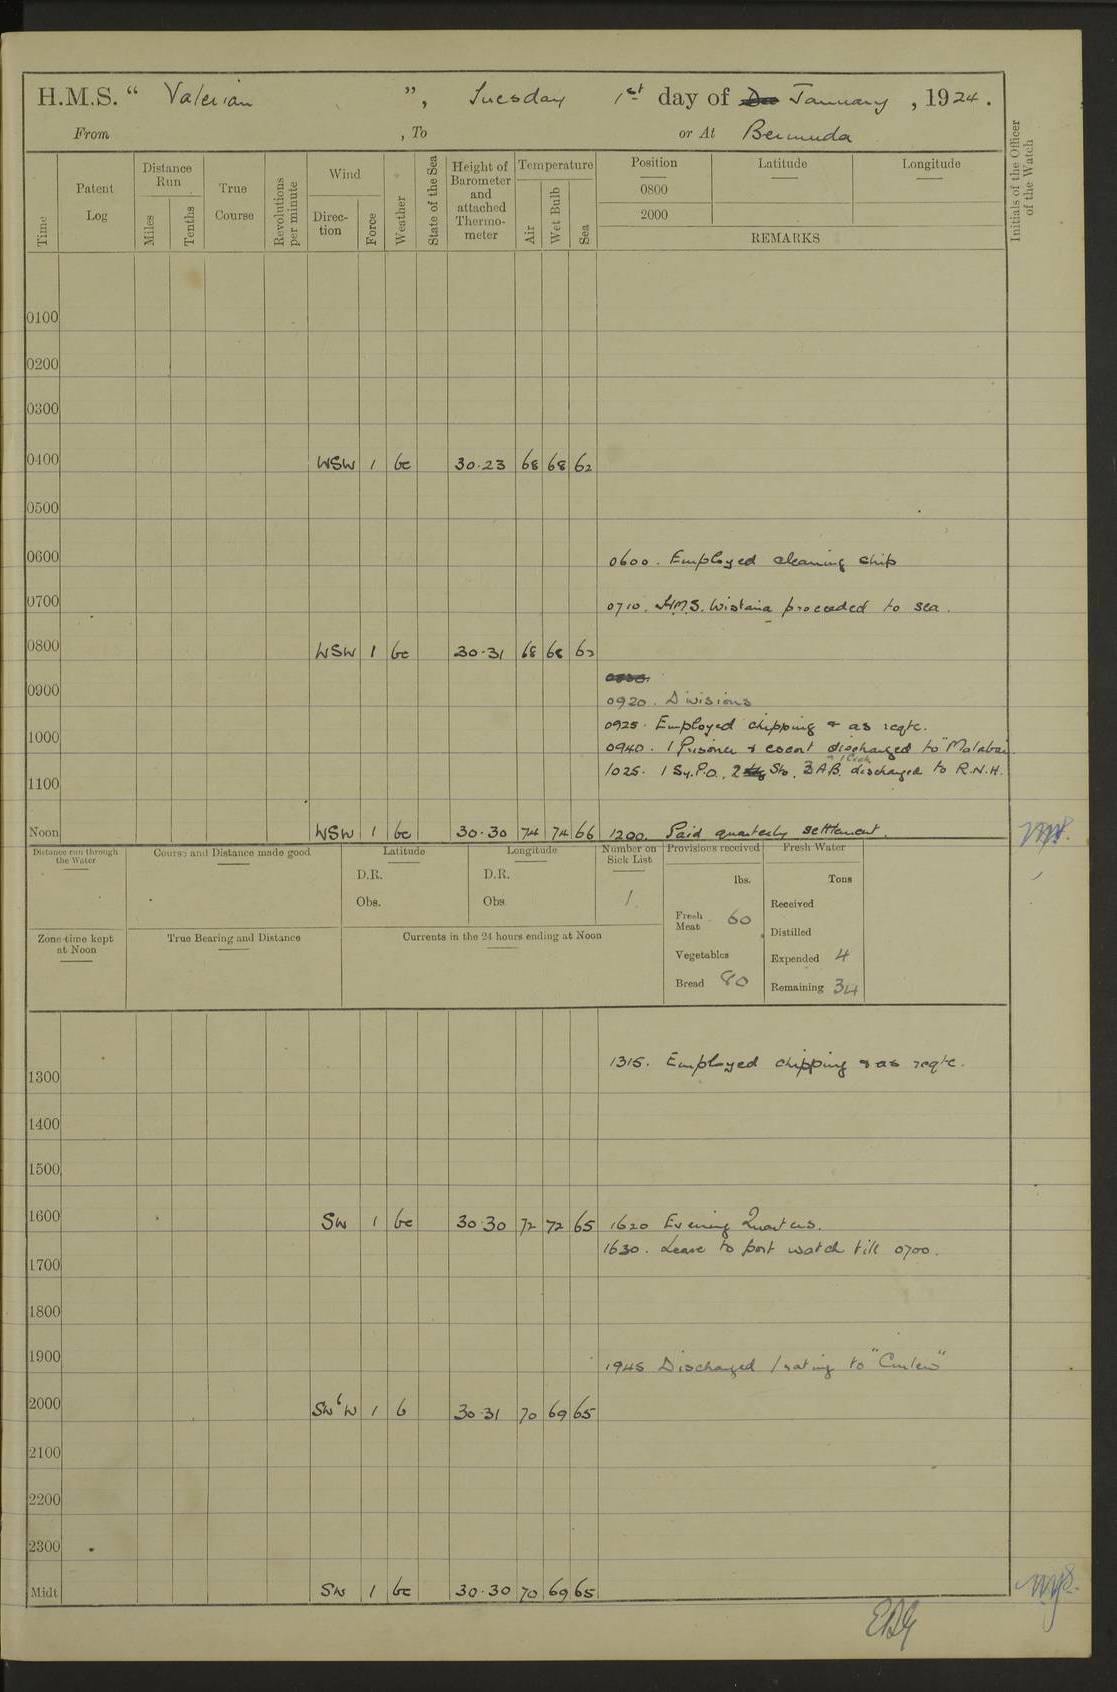 H.M.S. “ Valerian ”, Tuesday 1st day of January , 1924.
From , To or At Bermuda
Time
Patent Log
Distance Run
Miles
Tenths
True Course
Revolutions per minute
Wind
Direc-tion
Force
Weather
State of the Sea
Height of Barometer and attached Thermo-meter
Temperature
Air
Wet Bulb
Sea
Position
Latitude
Longitude
0800
2000
REMARKS
Initials of the Officer of the Watch
0100
0200
0300
0400 WSW 1 bc 30.23 68 68 62
0500
0600 0600. Employed cleaning ship
0700 0710. H.M.S. Wistaria proceeded to sea.
0800 WSW 1 bc 30.31 68 68 62
0900
0920. Divisions
0925. Employed chipping & as reqte.
1000 0940. 1 Prisoner & escort discharged to "Malabar
1025. 1 Sy.P.O., 2 Sto, 3 A.B. discharged to R.N.H.
1100
Noon WSW 1 bc 30.30 74 74 66 1200. Paid quarterly settlement.
Distance run through the Water
Course and Distance made good
Latitude
D.R.
Obs.
Longitude
D.R.
Obs.
Number on Sick List
1
Provisions received
lbs.
Fresh Meat 60
Vegetables
Bread 80
Fresh Water
Tons
Received
Distilled
Expended 4
Remaining 34
Zone time kept at Noon
True Bearing and Distance
Currents in the 24 hours ending at Noon
1300 1315. Employed chipping & as reqte.
1400
1500
1600 SW 1 bc 30.30 72 72 65 1620 Evening Quarters.
1630. Leave to port watch till 0700.
1700
1800
1900
1945 Discharged 1 rating to "Curlew"
2000 SW'W 1 b 30.31 70 69 65
2100
2200
2300
Midt SW 1 bc 30.30 70 69 65